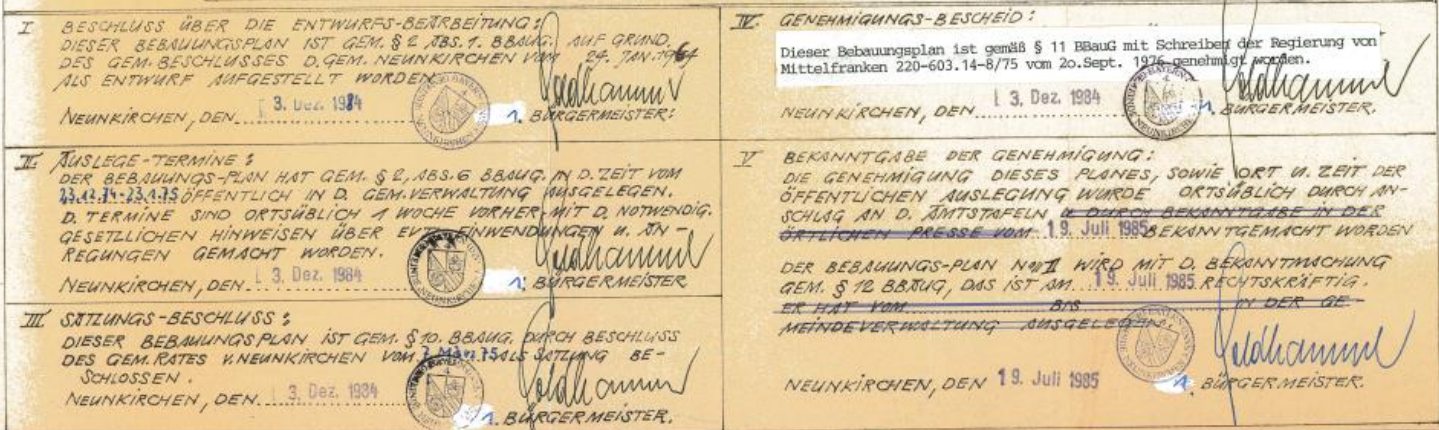 I BESCHLUSS ÜBER DIE ENTWURFS-BEARBEITUNG:
DIESER BEBAUUNGSPLAN IST GEM. § 2 ABS. 1. BBAUG. AUF GRUND
DES GEM. BESCHLUSSES D. GEM. NEUNKIRCHEN VOM 24. JAN. 1964
ALS ENTWURF AUFGESTELLT WORDEN
NEUNKIRCHEN, DEN 3. Dez. 1984
1. BÜRGERMEISTER:
II. AUSLEGE-TERMINE:
DER BEBAUUNGS-PLAN HAT GEM. § 2, ABS. 6 BBAUG. IN D. ZEIT VOM
23.12.74-23.1.75 ÖFFENTLICH IN D. GEM. VERWALTUNG AUSGELEGEN.
D. TERMINE SIND ORTSÜBLICH 1 WOCHE VORHER MIT D. NOTWENDIG.
GESETZLICHEN HINWEISEN ÜBER EVTL. EINWENDUNGEN U. AN-
REGUNGEN GEMACHT WORDEN.
NEUNKIRCHEN, DEN 3. Dez. 1984
1. BÜRGERMEISTER
III SATZUNGS-BESCHLUSS:
DIESER BEBAUUNGSPLAN IST GEM. § 10. BBAUG. DURCH BESCHLUSS
DES GEM. RATES V. NEUNKIRCHEN VOM 7. März 75 ALS SATZUNG BE-
SCHLOSSEN.
NEUNKIRCHEN, DEN 3. Dez. 1984
1. BÜRGERMEISTER.
IV. GENEHMIGUNGS-BESCHEID:
Dieser Bebauungsplan ist gemäß § 11 BBauG mit Schreiben der Regierung von
Mittelfranken 220-603.14-8/75 vom 2o.Sept. 1976 genehmigt worden.
NEUNKIRCHEN, DEN 3. Dez. 1984
1. BÜRGERMEISTER.
V BEKANNTGABE DER GENEHMIGUNG:
DIE GENEHMIGUNG DIESES PLANES, SOWIE ORT U. ZEIT DER
ÖFFENTLICHEN AUSLEGUNG WURDE ORTSÜBLICH DURCH AN-
SCHLAG AN D. AMTSTAFELN, U. DURCH BEKANNTGABE IN DER
ÖRTLICHEN PRESSE VOM 19. Juli 1985 BEKANNTGEMACHT WORDEN
DER BEBAUUNGS-PLAN II WIRD MIT D. BEKANNTMACHUNG
GEM. § 12 BBAUG, DAS IST AM 19. Juli 1985 RECHTSKRÄFTIG.
ER HAT VOM BIS IN DER GE-
MEINDEVERWALTUNG AUSGELEGEN.
NEUNKIRCHEN, DEN 19. Juli 1985
1. BÜRGERMEISTER.